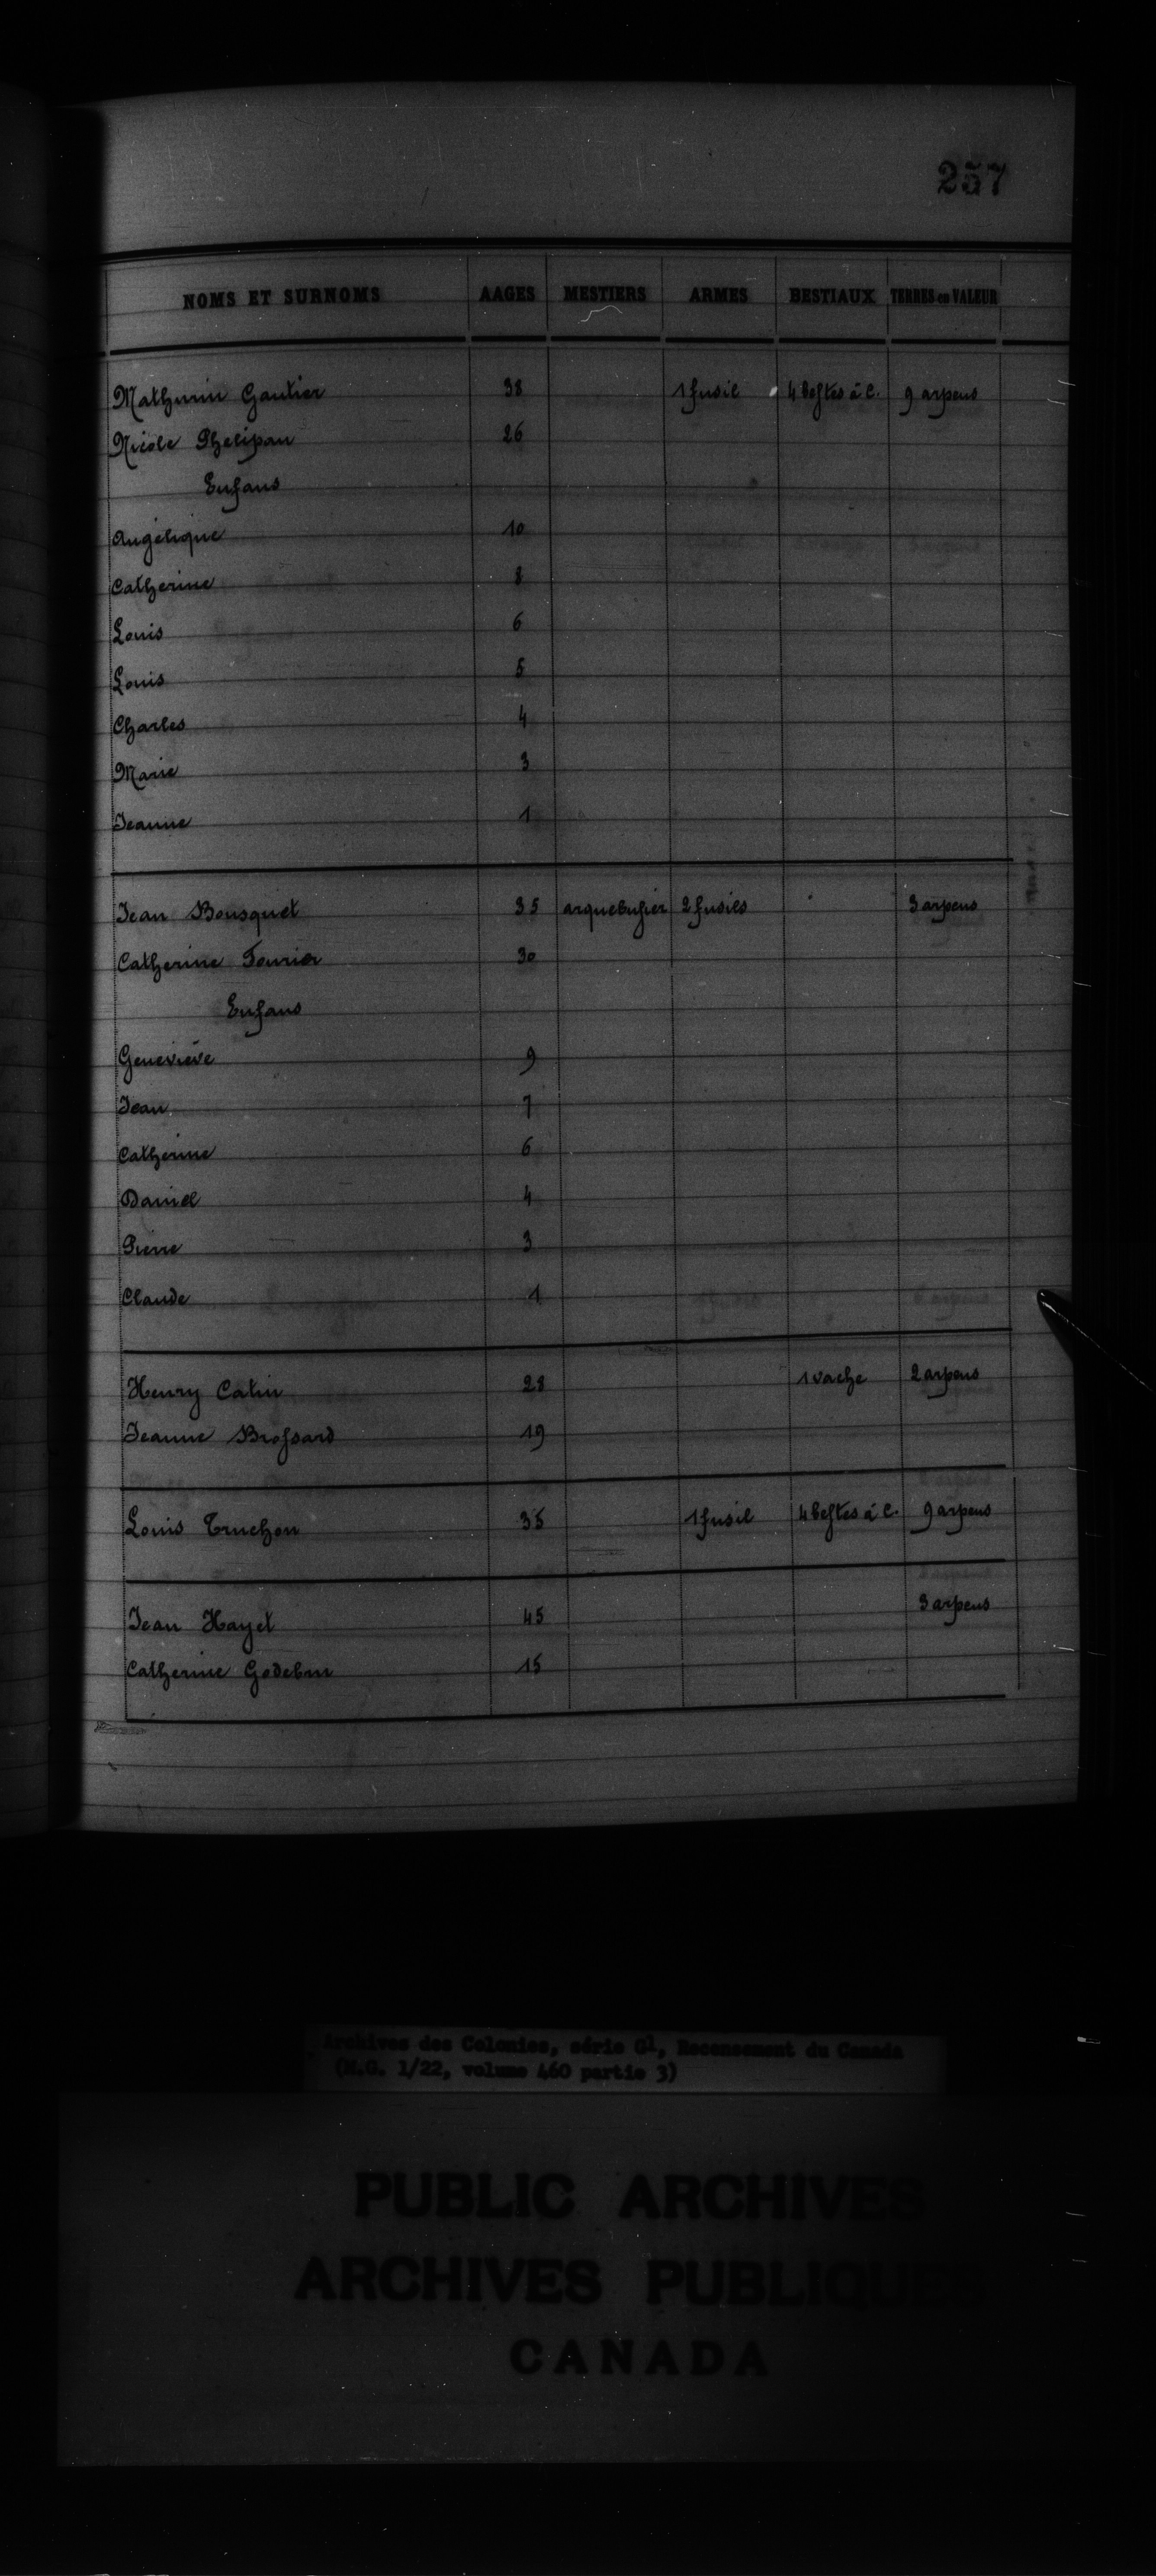 257
NOMS ET SURNOMS AAGES MESTIERS ARMES BESTIAUX TERRES en VALEUR
Mathurin Gautier 38 1 fusil 4 bestes à C. 9 arpens
Nicole Phelipau 26
Enfans
Angélique 10
Catherine 8
Louis 6
Louis 5
Charles 4
Marie 3
Jeanne 1
Jean Bousquet 35 arquebusier 2 fusils 3 arpens
Catherine Fourier 30
Enfans
Geneviève 9
Jean 7
Catherine 6
Daniel 4
Pierre 3
Claude 1
Henry Catin 28 1 vache 2 arpens
Jeanne Brossard 19
Louis Truchon 35 1 fusil 4 bestes à C. 9 arpens
Jean Hayet 45 3 arpens
Catherine Godebin 15
Archives des Colonies, série G1, Recensement du Canada
(M.G. 1/22, volume 460 partie 3)
PUBLIC ARCHIVES
ARCHIVES PUBLIQUES
CANADA